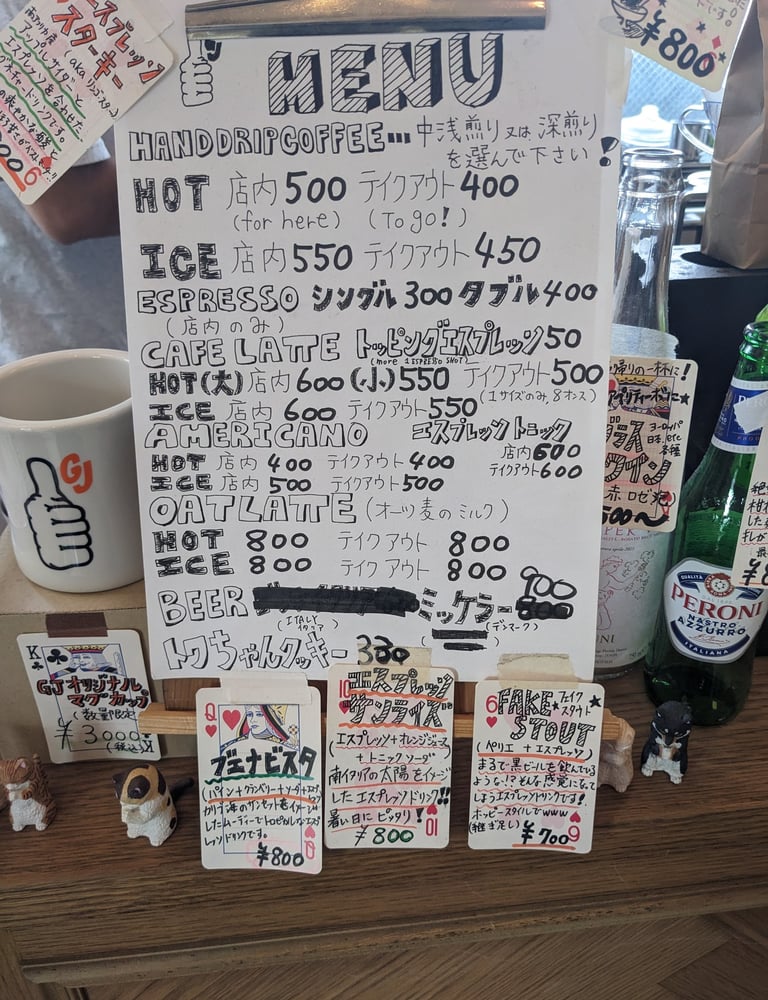 エスプレッソ
スターキー
¥800
MENU
HAND DRIP COFFEE… 中浅煎り又は、深煎り
を選んで下さい!
HOT 店内500 テイクアウト400
(for here) (To go!)
ICE 店内550 テイクアウト450
ESPRESSO シングル300 ダブル400
(店内のみ)
CAFE LATTE トッピングエスプレッソ50
(more 1 ESPRESSO SHOT)
HOT(大)店内600(小)550 テイクアウト500
(1サイズのみ,8オンス)
ICE 店内600 テイクアウト550
AMERICANO エスプレッソトニック
店内600
HOT 店内400 テイクアウト400
テイクアウト600
ICE 店内500 テイクアウト500
OAT LATTE (オーツ麦のミルク)
HOT 800 テイクアウト 800
ICE 800 テイクアウト 800
BEER ミッケラー 900
(ITALY イタリア) (デンマーク)
トワちゃんクッキー 330
GJ
グラス
ワイン
赤 ロゼ 泡
500〜
PERONI
NASTRO AZZURRO
ITALIANA
K
GJオリジナル
マグカップ
(数量限定)
¥3000(税込)
K
Q
ブエナビスタ
(パイン+クランベリー+ソーダ+エスプレッソ)
¥800
Q
10
エスプレッソ
サンライズ
(エスプレッソ+オレンジジュース
+トニックソーダ)
南イタリアの太陽をイメージ
したエスプレッソドリンク!!
暑い日にピッタリ!
¥800
10
6
FAKE フェイク
STOUT スタウト
(ペリエ+エスプレッソ)
まるで黒ビールを飲んでいる
ような!?そんな感覚になって
しまうエスプレッソドリンクです!
ホッピースタイルでwww
(継ぎ足し)
¥700
6